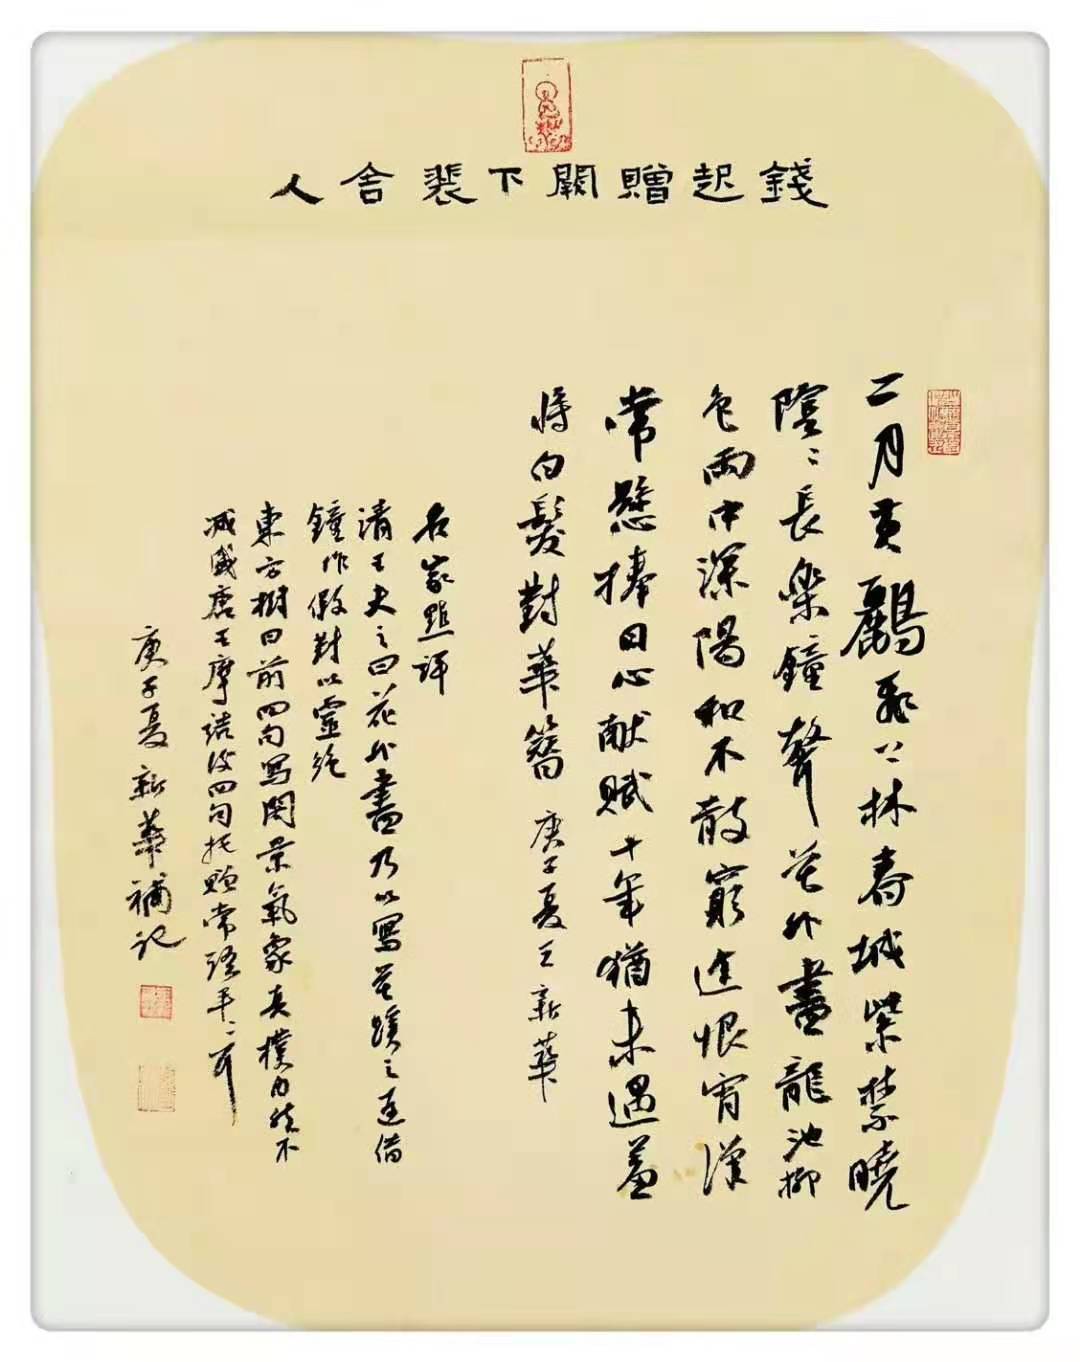 錢起贈闕下裴舍人
二月黄鸝飛上林春城紫禁曉
陰〻長樂鐘聲花外盡龍池柳
色雨中深陽和不散窮途恨宵漢
常懸捧日心献賦十年猶未遇羞
將白髮對華簪 庚子夏王新華
名家點評
清王夫之曰花外盡乃以寫花蹊之連借
鐘作假對以靈絶
東方樹曰前四句寫闕景氣象真樸自然不
减盛唐王摩詰後四句托贈常語平〻耳
庚子夏新華補記